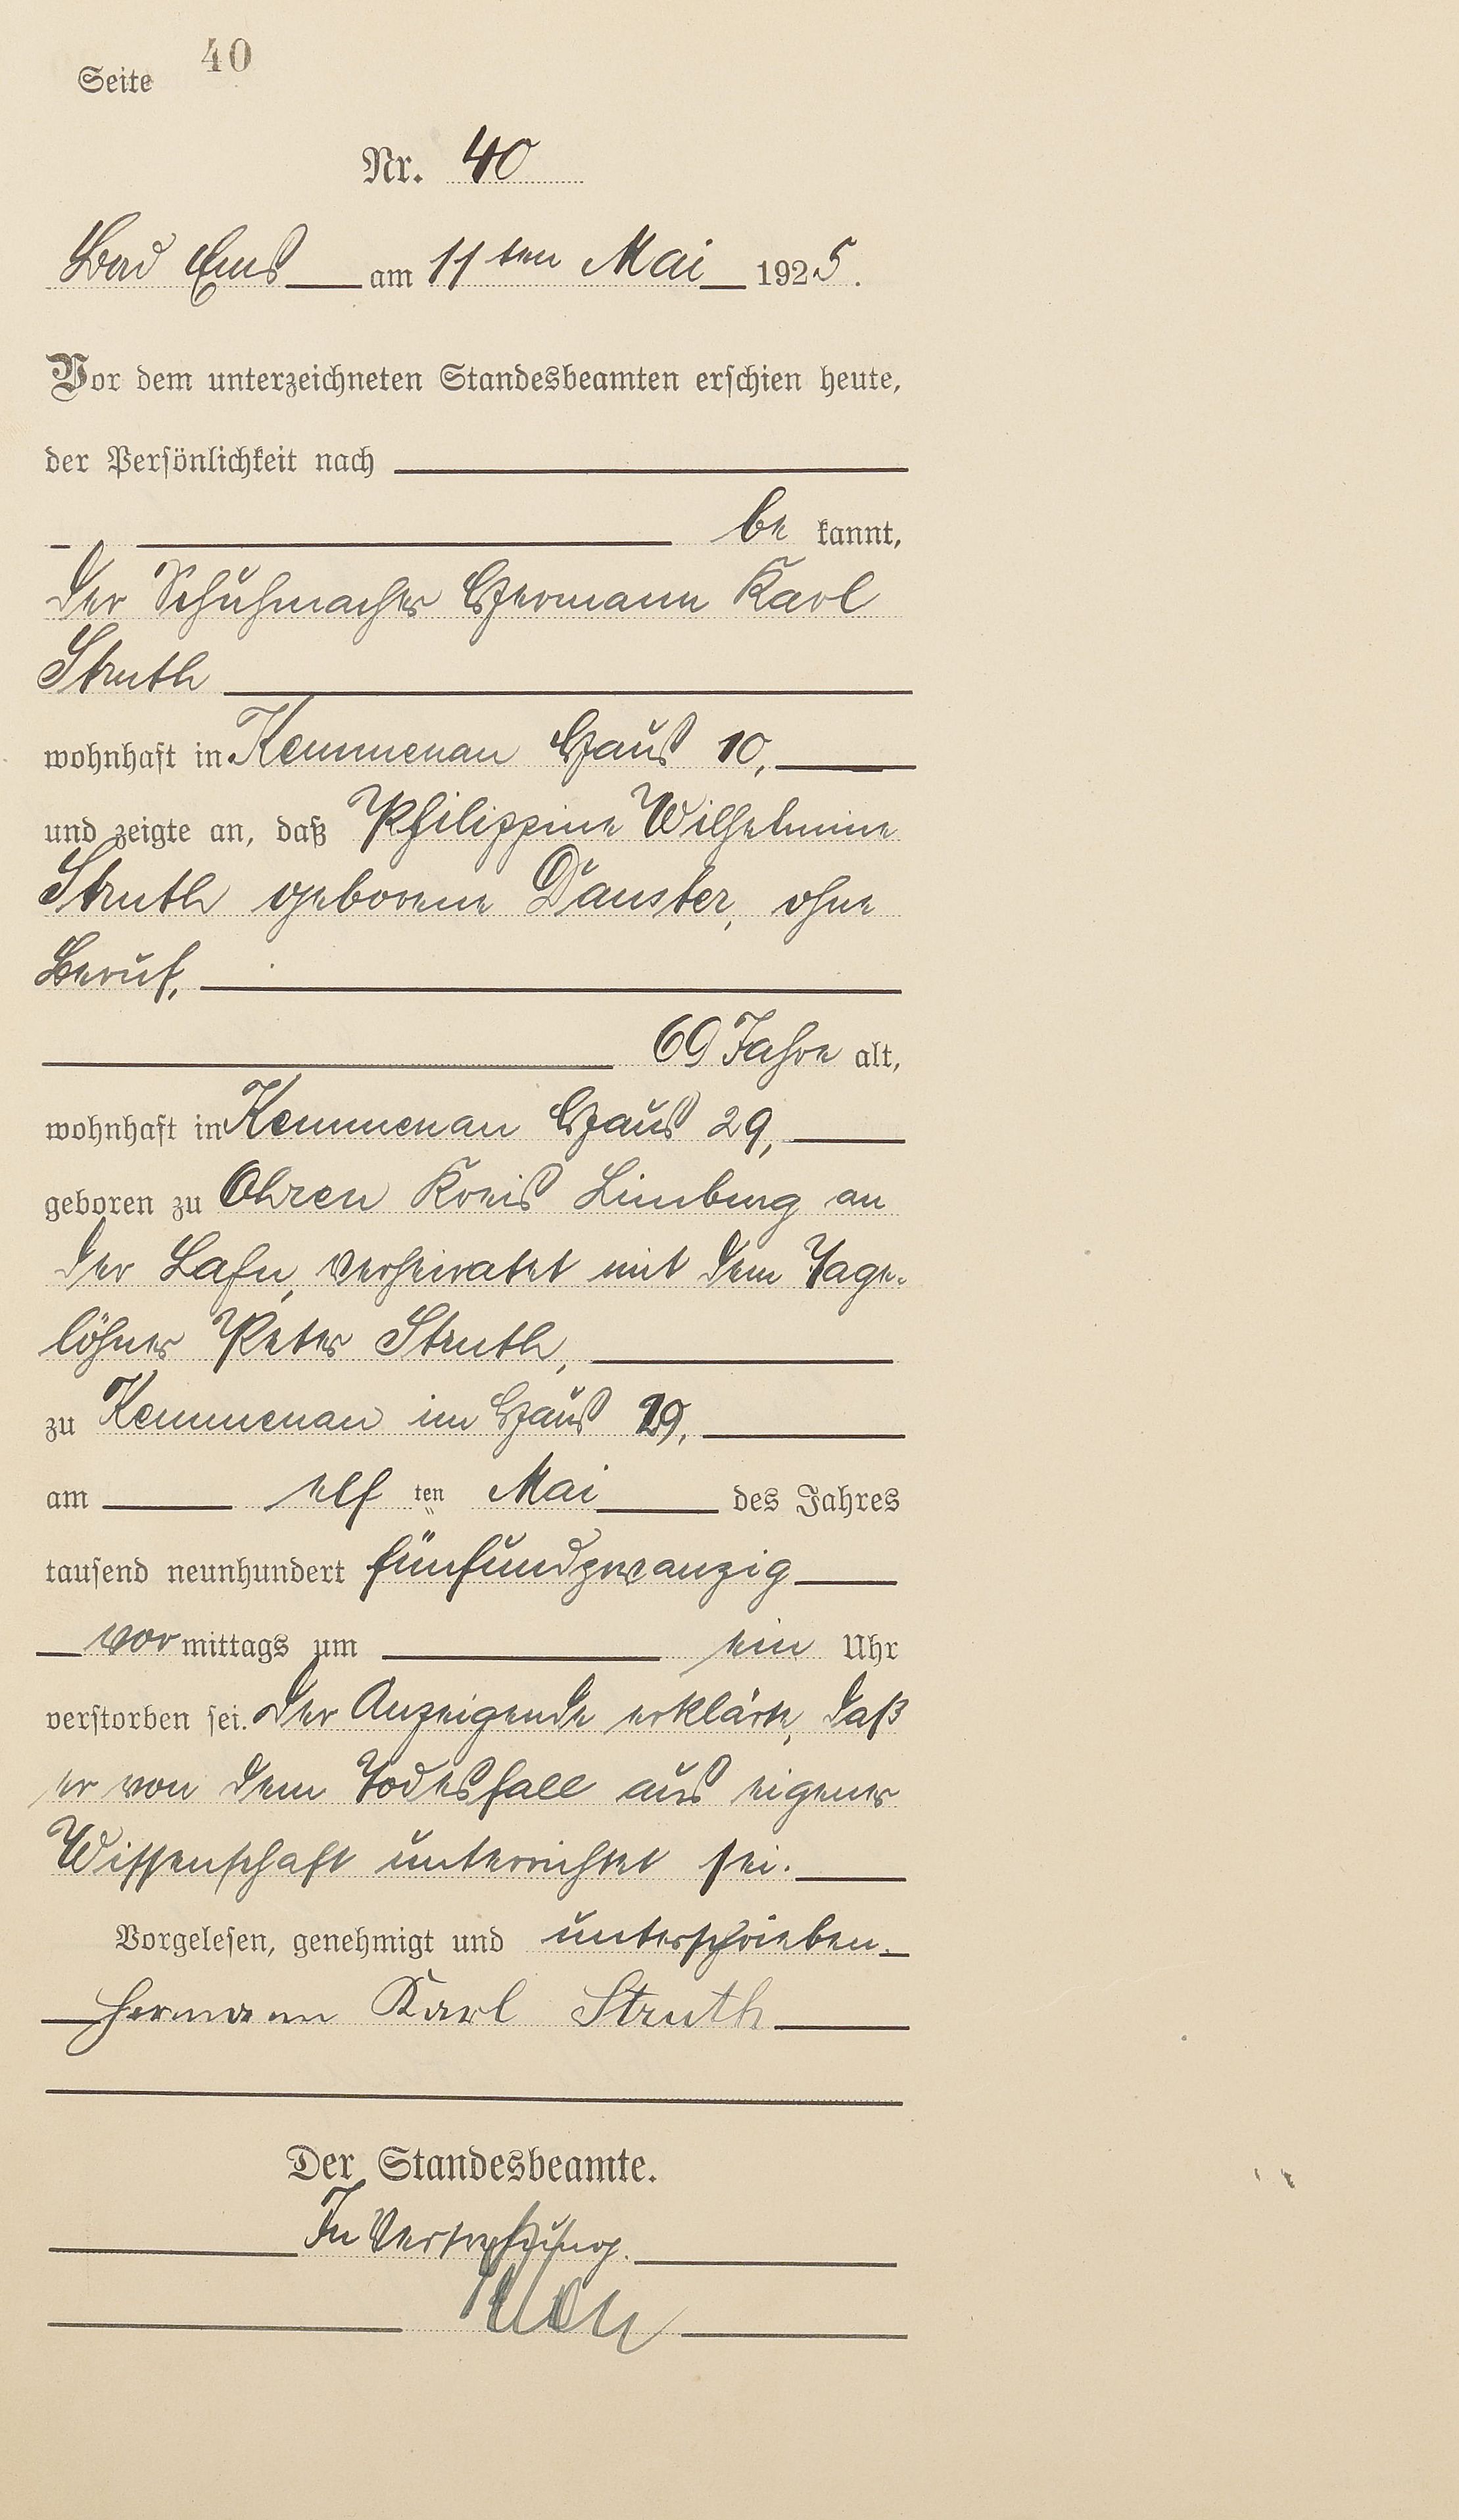 Seite 40
Nr. 40
Bad Ems am 11ten Mai 1925.
Vor dem unterzeichneten Standesbeamten erschien heute,
der Persönlichkeit nach
be kannt,
der Schuhmacher Hermann Karl
Struth
wohnhaft in Kemmenau Haus 10,
und zeigte an, daß Philippine Wilhelmine
Struth geborene Dauster, ohne
Beruf,
69 Jahre alt,
wohnhaft in Kemmenau Haus 29,
geboren zu Ohren Kreis Limburg an
der Lahn, verheiratet mit dem Tage-
löhner Peter Struth,
zu Kemmenau im Haus 29,
am elf ten Mai des Jahres
tausend neunhundert fünfundzwanzig
vor mittags um ein Uhr
verstorben sei. Der Anzeigende erklärte, daß
er von dem Todesfall aus eigener
Wissenschaft unterrichtet sei.
Vorgelesen, genehmigt und unterschrieben.
Hermann Karl Struth
Der Standesbeamte.
In Vertretung.